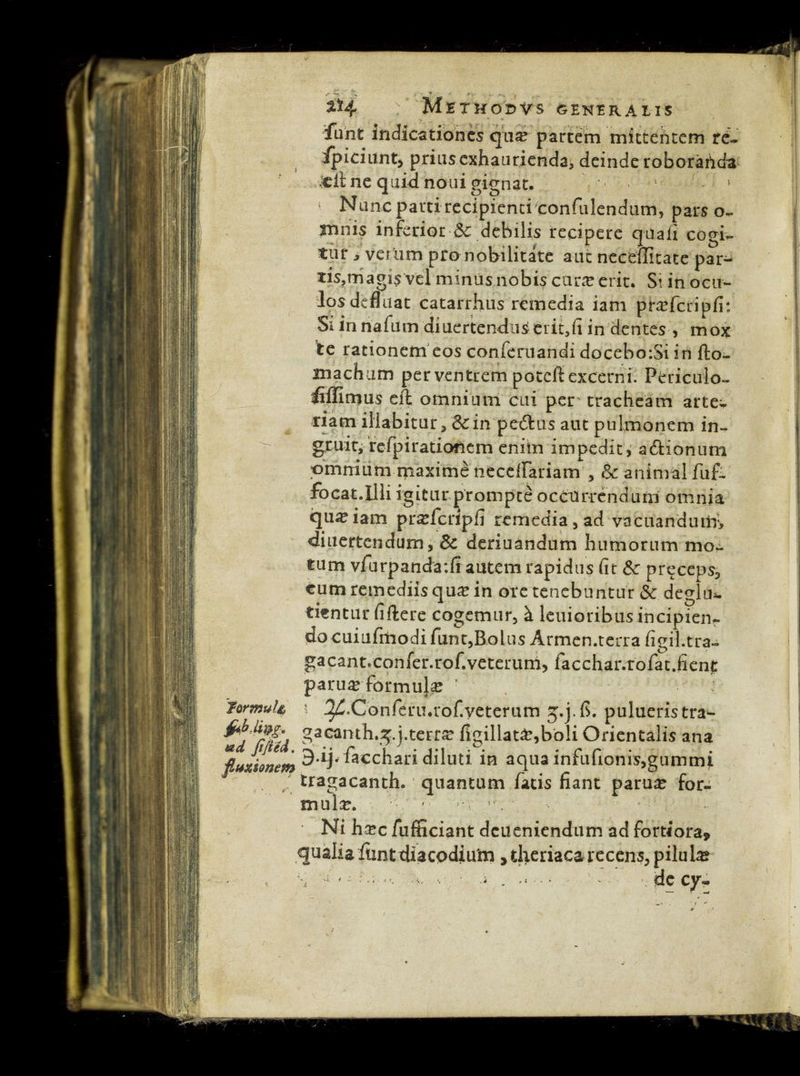 214 METHODVS GENERALIS
ſunt indicationes quæ partem mittentem re-
ſpiciunt, prius exhaurienda, deinde roboranda
eſt ne quid noui gignat.
Nunc parti recipienti conſulendum, pars o-
mnis inferior & debilis recipere quaſi cogi-
tur, verùm pro nobilitate aut neceſſitate par-
tis, magis vel minus nobis curæ erit. Si in ocu-
los defluat catarrhus remedia iam præſcripſi:
Si in naſum diuertendus erit, ſi in dentes, mox
te rationem eos conſeruandi docebo: Si in ſto-
machum per ventrem poteſt excerni. Periculo-
ſiſſimus eſt omnium cui per tracheam arte-
riam illabitur, & in pectus aut pulmonem in-
gruit, reſpirationem enim impedit, actionum
omnium maximè neceſſariam, & animal ſuf-
focat. Illi igitur promptè occurrendum omnia
quæ iam præſcripſi remedia, ad vacuandum,
diuertendum, & deriuandum humorum mo-
tum vſurpanda: ſi autem rapidus ſit & pręceps,
cum remediis quæ in ore tenebuntur & deglu-
tientur ſiſtere cogemur, à leuioribus incipien-
do cuiuſmodi ſunt, Bolus Armen. terra ſigil. tra-
gacant. conſer. roſ. veterum, ſacchar. roſat. fient
paruæ formulæ
Formulæ ſub ling. ad ſiſtēd. fluxionem
℞. Conſeru. roſ. veterum ʒ.j. ß. pulueris tra-
gacanth. ʒ.j. terræ ſigillatæ, boli Orientalis ana
℈.ij. ſacchari diluti in aqua infuſionis, gummi
tragacanth. quantum ſatis fiant paruæ for-
mulæ.
Ni hæc ſufficiant deueniendum ad fortiora,
qualia ſunt diacodium, theriaca recens, pilulæ
de cy-